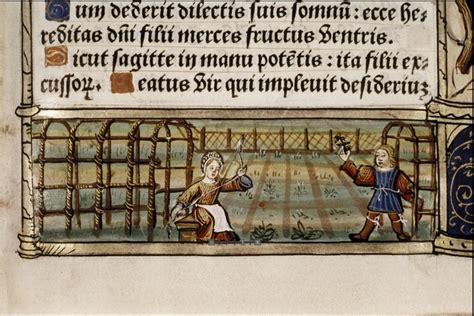 um dederit dilectis suis somnū: ecce he-
reditas dn̄i filii merces fructus ventris.
Sicut sagitte in manu potētis: ita filii ex-
cussoꝝ. Beatus vir qui impleuit desideriuꝫ